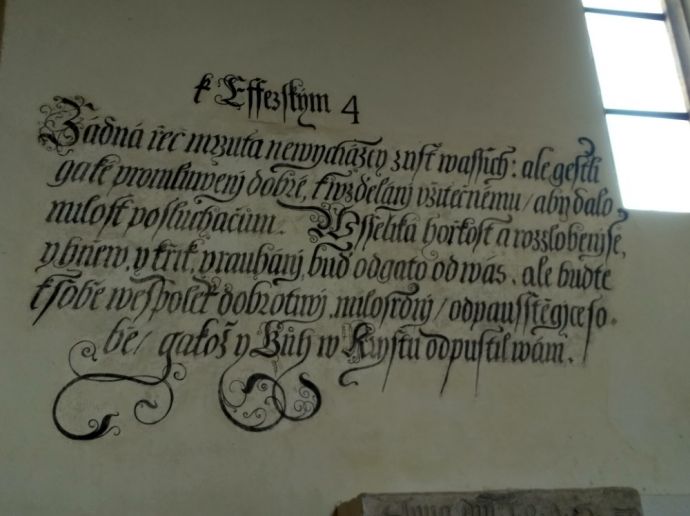 k Effezským 4
Žádná řeč mrzuta newycházey z úst wassich: ale gestli
gaké promluwenj dobré, k wzdělánj vžitečnému / aby dalo
milost posluchačům. Wsseliká hořkost a rozzlobenj se,
y hněw, y křik, y rauhánj, buď odgato od wás. ale buďte
k sobě wespolek dobrotiwj, milosrdnj / odpausstěgjce so-
bě / gakož y Bůh w Krystu odpustil wám.
Anno